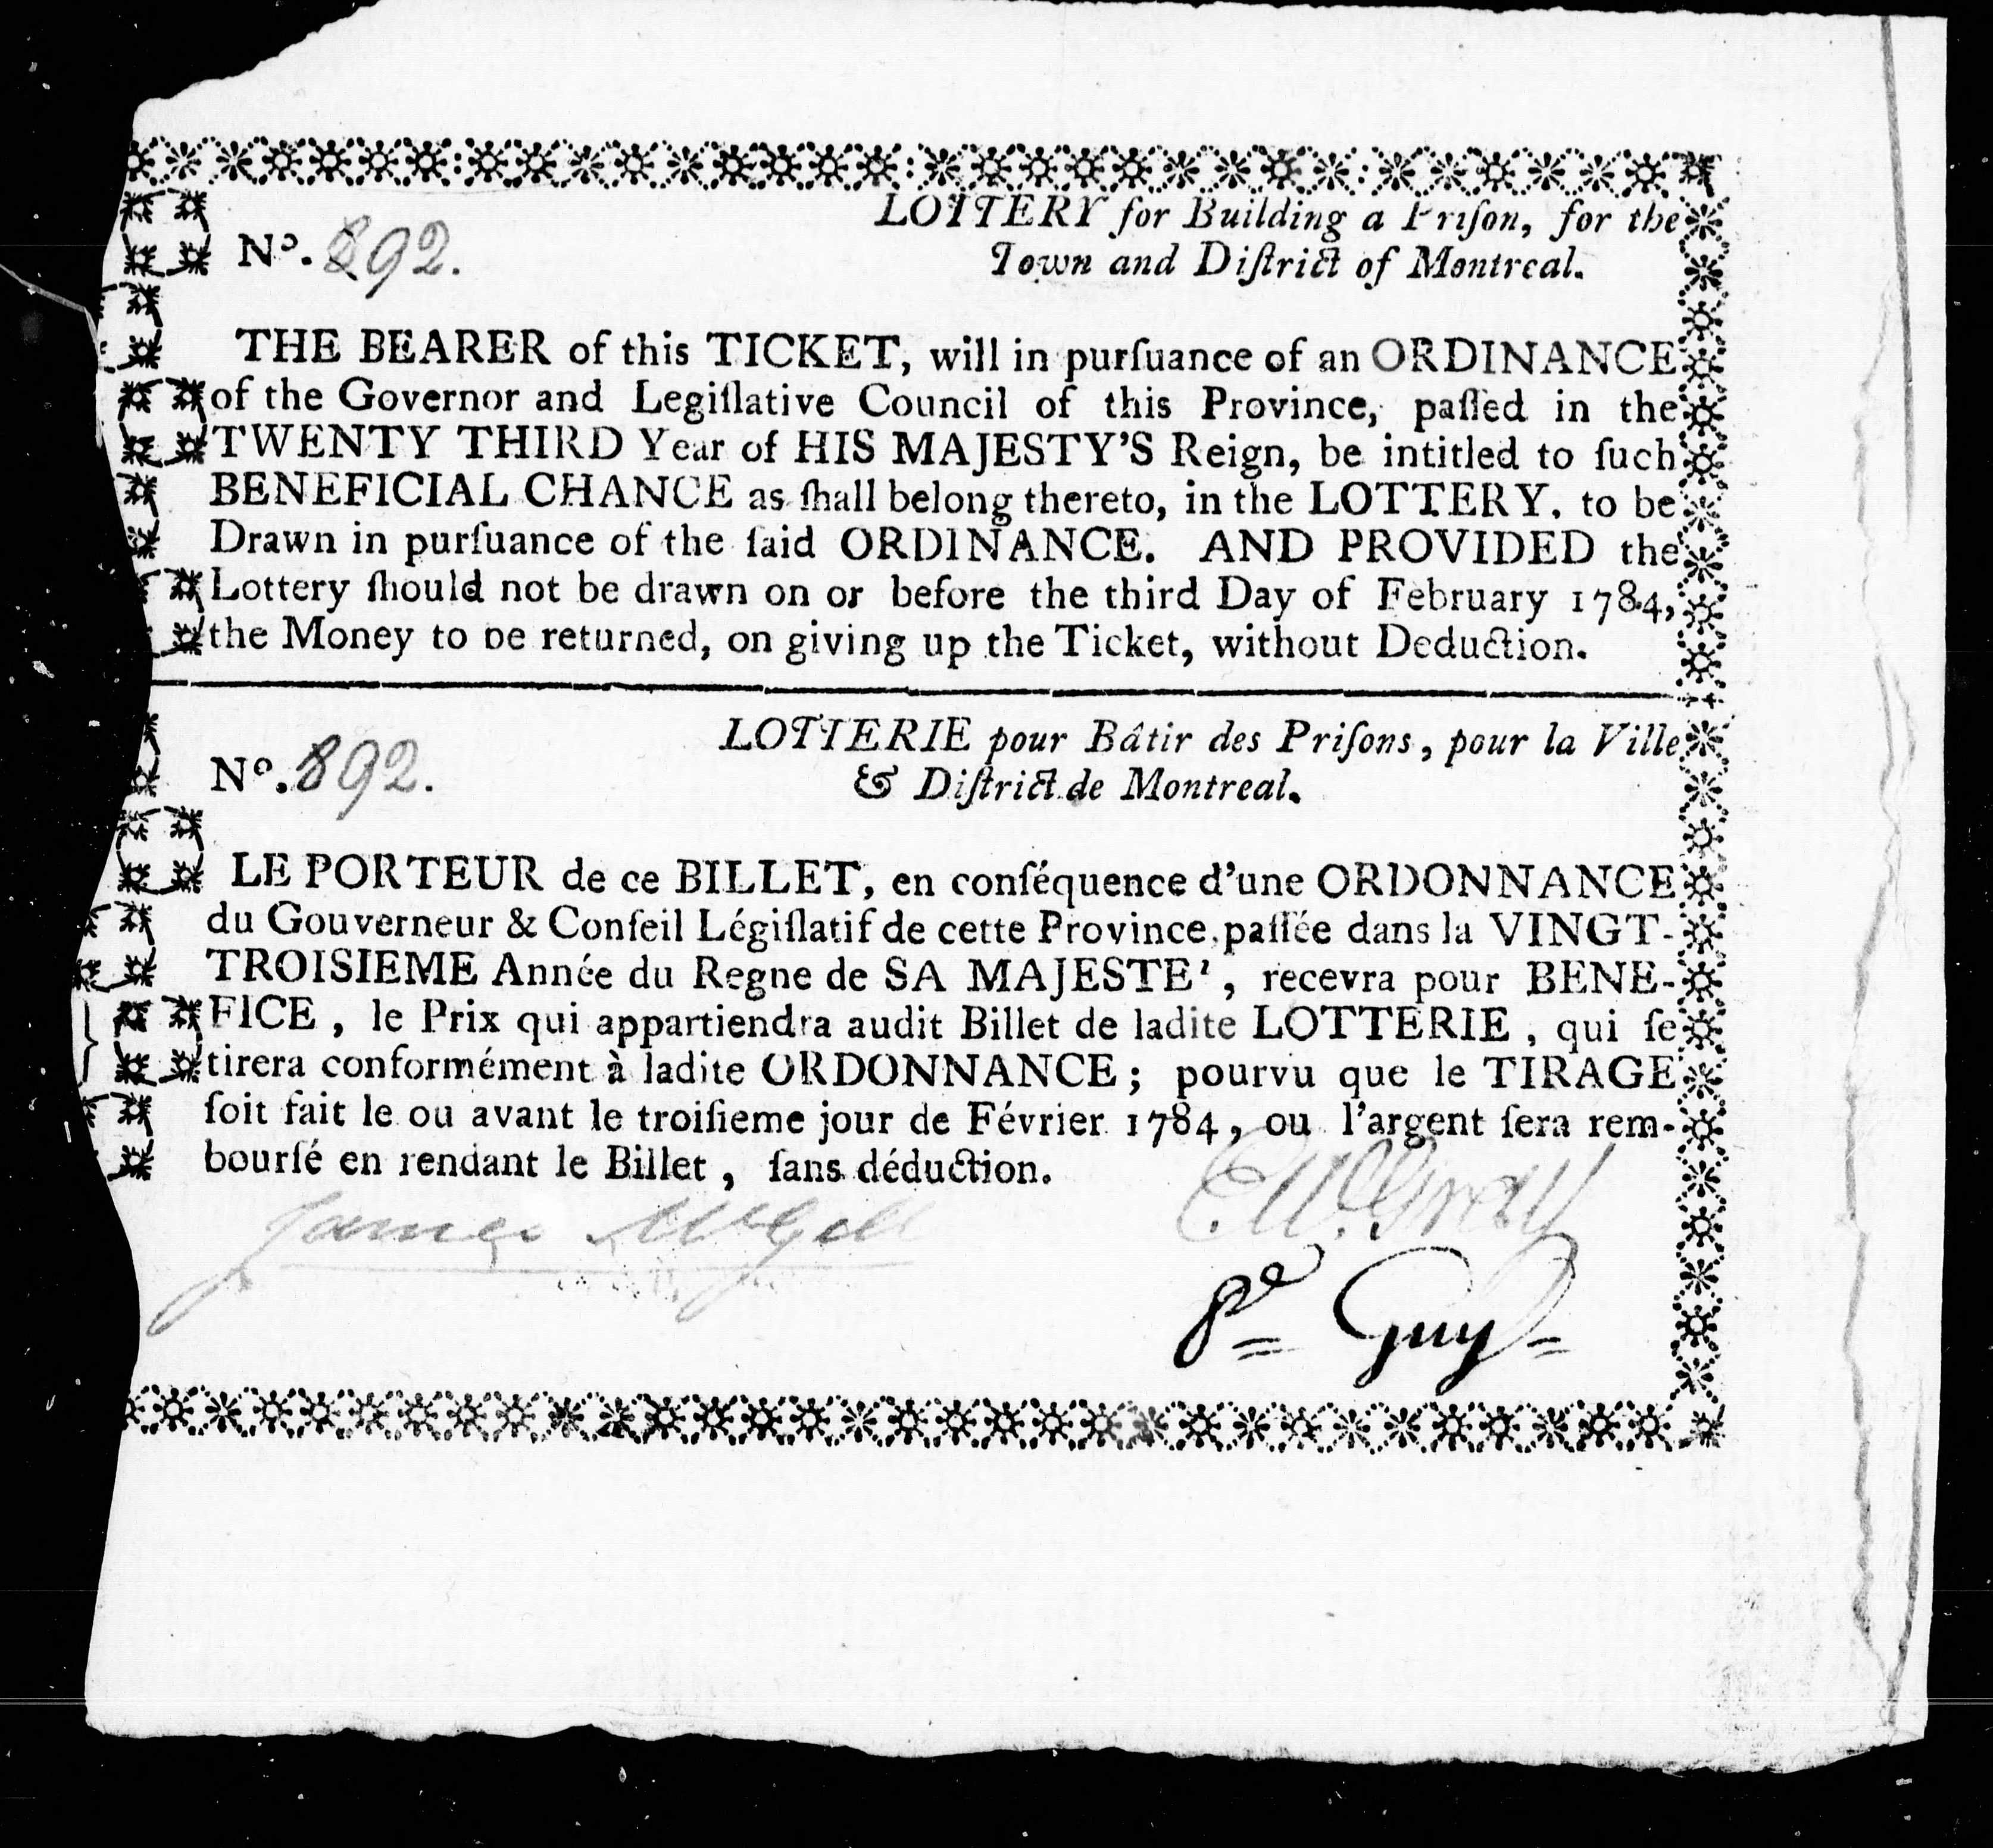 LOTTERY for Building a Priſon, for the
Nº. 892.
Town and Diſtrict of Montreal.
THE BEARER of this TICKET, will in purſuance of an ORDINANCE
of the Governor and Legiſlative Council of this Province, paſſed in the
TWENTY THIRD Year of HIS MAJESTY'S Reign, be intitled to ſuch
BENEFICIAL CHANCE as ſhall belong thereto, in the LOTTERY, to be
Drawn in purſuance of the ſaid ORDINANCE. AND PROVIDED the
Lottery ſhould not be drawn on or before the third Day of February 1784,
the Money to be returned, on giving up the Ticket, without Deduction.
LOTTERIE pour Bâtir des Priſons, pour la Ville
Nº. 892.
& Diſtrict de Montreal.
LE PORTEUR de ce BILLET, en conſéquence d'une ORDONNANCE
du Gouverneur & Conſeil Légiſlatif de cette Province, paſſée dans la VINGT-
TROISIEME Année du Regne de SA MAJESTE', recevra pour BENE-
FICE, le Prix qui appartiendra audit Billet de ladite LOTTERIE, qui ſe
tirera conformément à ladite ORDONNANCE; pourvu que le TIRAGE
ſoit fait le ou avant le troiſieme jour de Février 1784, ou l'argent ſera rem-
bourſé en rendant le Billet, ſans déduction.
James McGill
E. W. Gray
Pe Guy